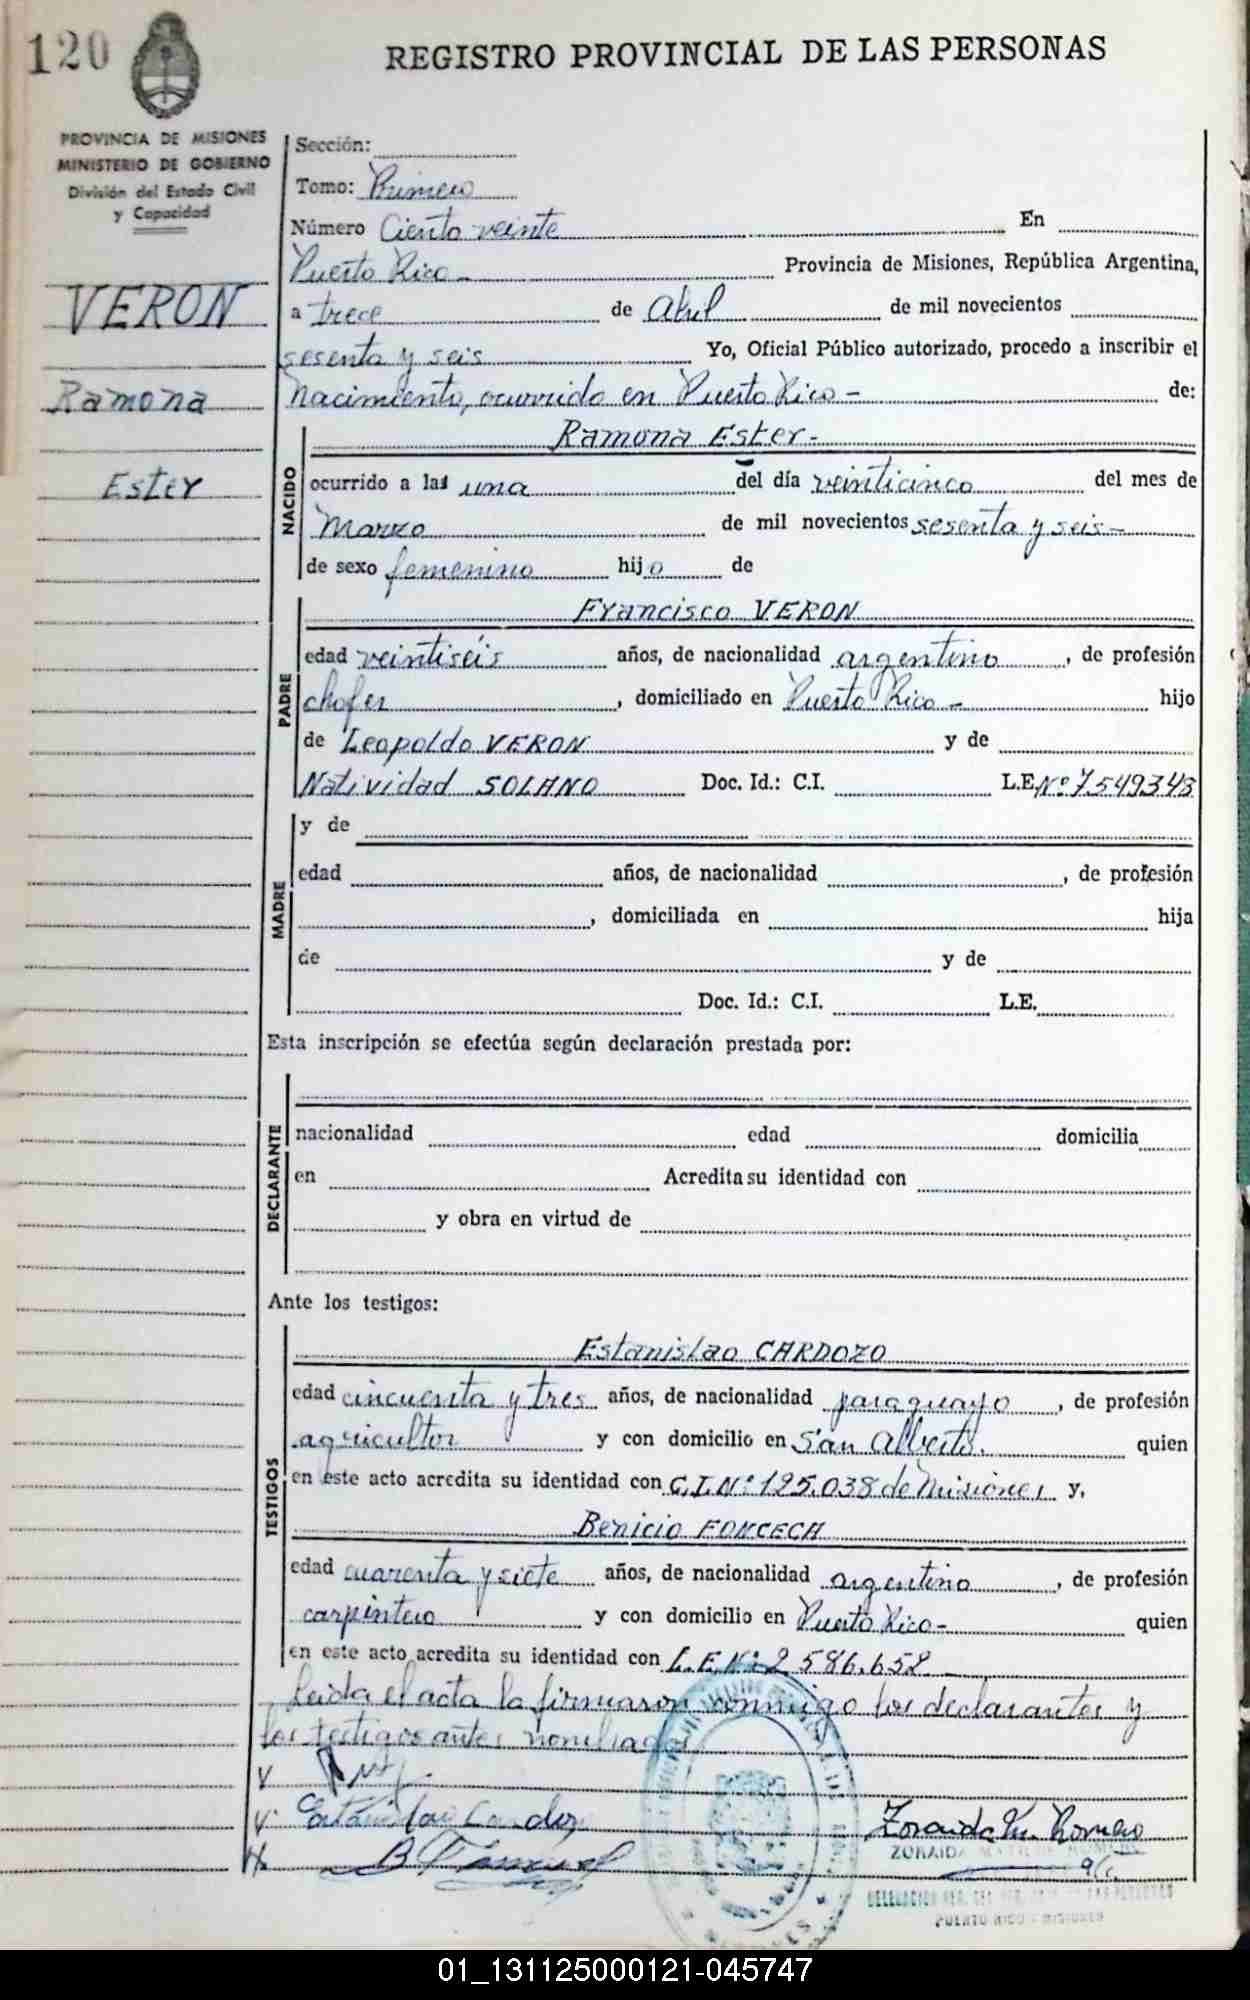 120
REGISTRO PROVINCIAL DE LAS PERSONAS
PROVINCIA DE MISIONES
MINISTERIO DE GOBIERNO
División del Estado Civil
y Capacidad
VERON
Ramona
Ester
Sección:
Tomo: Primero
Número Ciento veinte En
Puerto Rico - Provincia de Misiones, República Argentina,
a trece de Abril de mil novecientos
sesenta y seis Yo, Oficial Público autorizado, procedo a inscribir el
nacimiento, ocurrido en Puerto Rico - de:
NACIDO
Ramona Ester -
ocurrido a las una del día veinticinco del mes de
Marzo de mil novecientos sesenta y seis -
de sexo femenino hijo de
PADRE
Francisco VERON
edad veintiséis años, de nacionalidad argentino, de profesión
chofer, domiciliado en Puerto Rico - hijo
de Leopoldo VERON y de
Natividad SOLANO Doc. Id.: C.I. L.E. Nº 7549343
MADRE
y de
edad años, de nacionalidad , de profesión
, domiciliada en hija
de y de
Doc. Id.: C.I. L.E.
Esta inscripción se efectúa según declaración prestada por:
DECLARANTE
nacionalidad edad domicilia
en Acredita su identidad con
y obra en virtud de
Ante los testigos:
TESTIGOS
Estanislao CARDOZO
edad cincuenta y tres años, de nacionalidad paraguayo, de profesión
agricultor y con domicilio en San Alberto. quien
en este acto acredita su identidad con C.I. Nº 125.038 de Misiones y,
Benicio FONCECA
edad cuarenta y siete años, de nacionalidad argentino, de profesión
carpintero y con domicilio en Puerto Rico - quien
en este acto acredita su identidad con L.E. Nº 2 586.658
Leida el acta la firmaron conmigo los declarantes y
los testigos antes nombrados
Estanislao Cardozo
Zoraida M. Romero
ZORAIDA ROMERO
PUERTO RICO - MISIONES
01_131125000121-045747